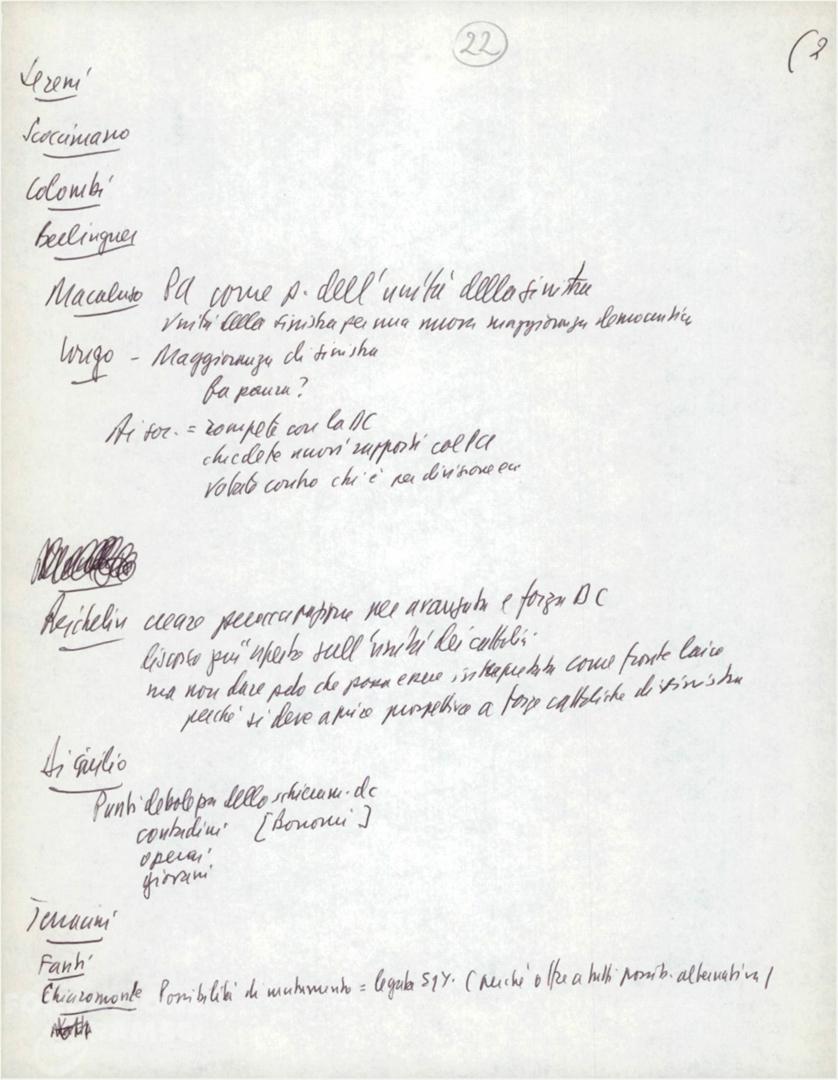 22
(2
Sereni
Scoccimarro
Colombi
Berlinguer
Macaluso Pci come p. dell'unità della sinistra
unità della sinistra per una nuova maggioranza democratica
Longo - Maggioranza di sinistra
fa paura?
Ai soc. = rompete con la DC
chiedete nuovi rapporti col Pci
votate contro chi è per divisione
Reichlin creare preoccupazione per avanzata e forza DC
discorso più aperto sull'unità dei cattolici
ma non dare adito che possa essere interpretata come fronte laico
perché si deve aprire prospettiva a forze cattoliche di sinistra
Di Giulio
Punti deboli dello schieram. dc
contadini [Bonomi]
operai
giovani
Terracini
Fanti
Chiaromonte Possibilità di mutamento = legata (perché oltre a tutti possib. alternativa)